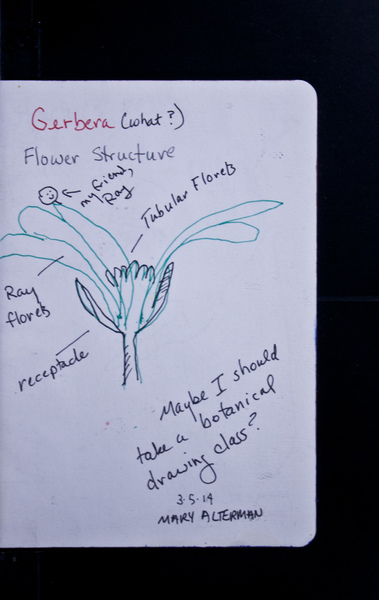 Gerbera (what?)
Flower Structure
my friend,
Ray
Tubular Florets
Ray
florets
receptacle
Maybe I should
take a botanical
drawing class?
3.5.14
MARY ALTERMAN